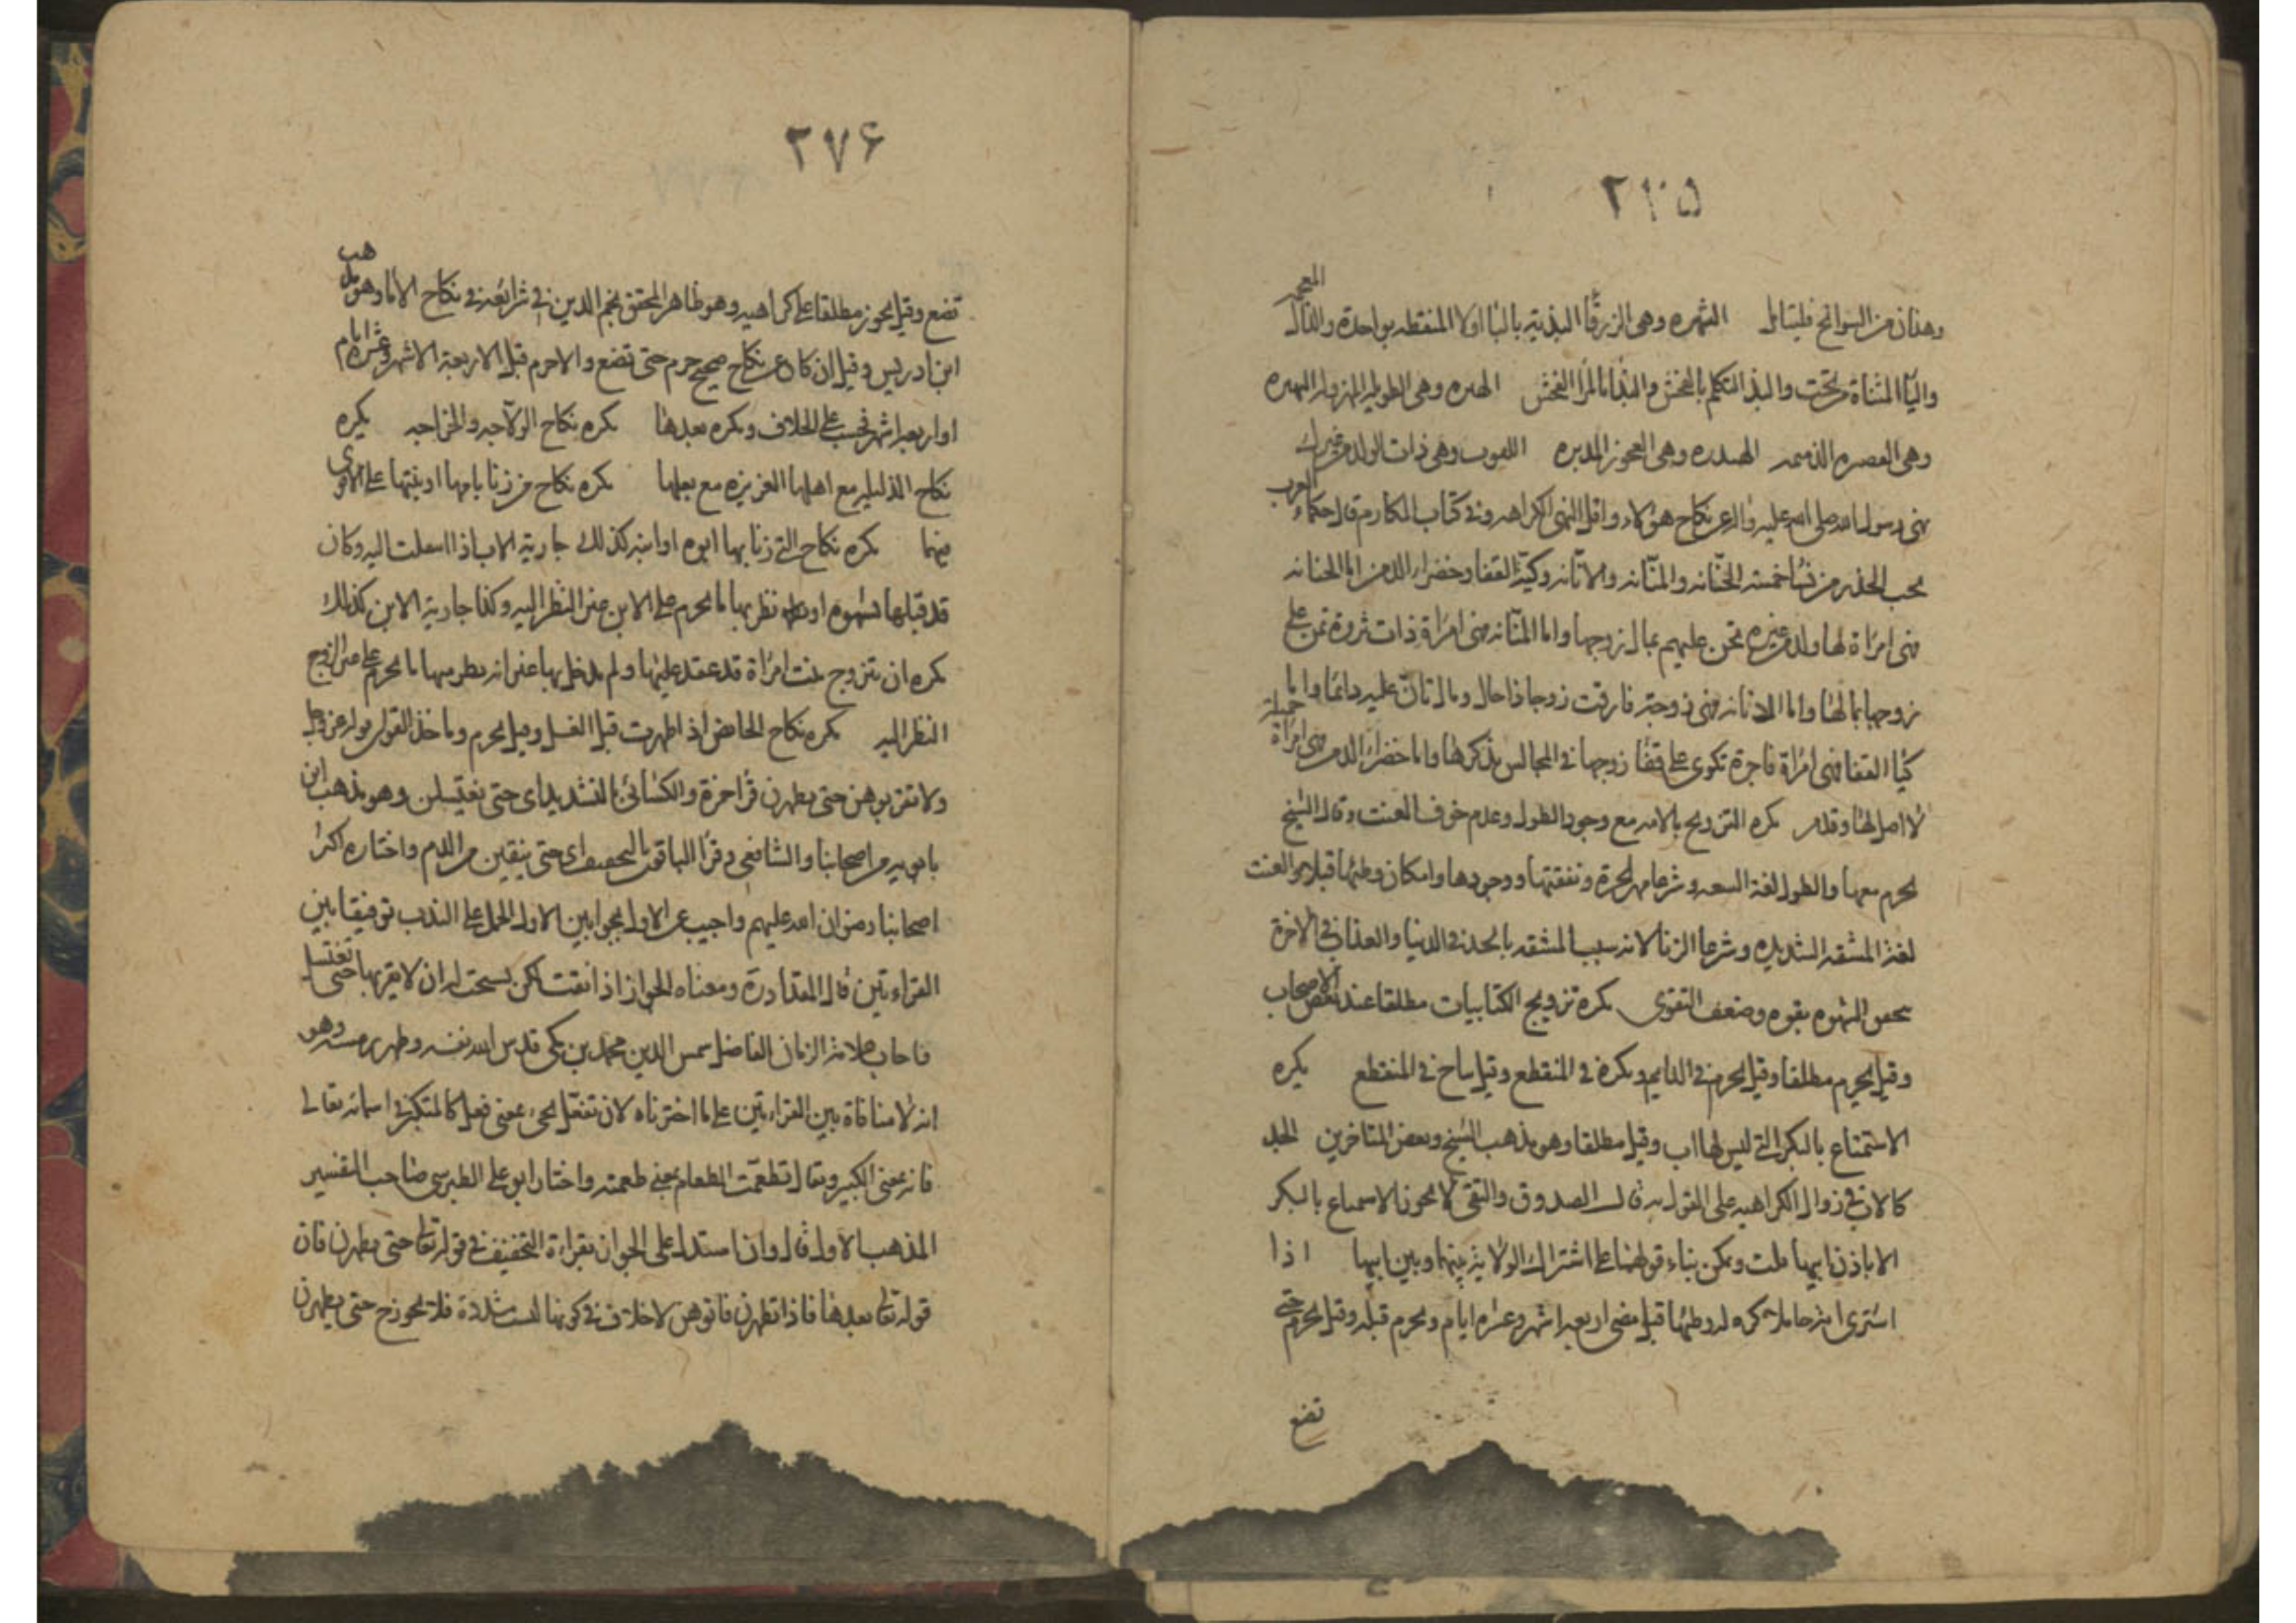 ٢٧٥
وهذان من السوانح فليتأمل الشهبره وهى الزرقا البذية بالبا اولا المنقطه بواحدة والذال المعجمه
واليا المثناة من تحت والبذا التكلم بالفحش والبذا بالمرا الفحش اللهبره وهى الطويله المهزوله النهبره
وهى القصيره الذميمه الهيدره وهى العجوز المدبره اللفوت وهى ذات الولد من غيرك
نهى رسول الله صلى الله عليه واله عن نكاح هؤلاء واقل النهى الكراهيه وفى كتاب المكارم قال حكماء العرب
يجب الحذر من نسا خمسه الحنانه والمنانه والانانه وكية القفا وخضراء الدمن اما الحنانه
فهى امراة لها ولد من غيره تحن عليهم بمال زوجها واما المنانه فهى امراة ذات ثروة تمن على
زوجها بمالها واما الانانه فهى زوجة فارقت زوجا ذا حال ومال تان عليه دائما واما
كيا القفا فهى امراة فاجرة تكوى على قفا زوجها فى المجالس بذكرها واما خضراء الدمن فهى امراة جميلة
لا اصل لها وقدم يكره التزويج بالامه مع وجود الطول وعدم خوف العنت وقال الشيخ
يحرم معها والطول لغة السعه وشرعا مهر الحرة ونفقتها ووجودها وامكان وطئها قبلا والعنت
لغة المشقه الشديده وشرعا الزنا لانه سبب المشقه بالحد فى الدنيا والعذاب فى الاخرة
تحقق الشهوه بقوه وضعف التقوى يكره تزويج الكتابيات مطلقا عند بعض الاصحاب
وقيل يحرم مطلقا وقيل يحرم فى الدايم ويكره فى المنقطع وقيل يباح فى المنقطع يكره
الاستمتاع بالبكر التى ليس لها اب وقيل مطلقا وهو مذهب الشيخ وبعض المتاخرين الجد
كالاب فى زوال الكراهيه على القول به قال الصدوق والتقى لا يجوز الاستمتاع بالبكر
الا باذن ابيها قلت ويمكن بناء قولهما على اشتراك الولاية بينها وبين ابيها اذا
اشترى امة حاملا كره له وطئها قبل مضى اربعه اشهر وعشره ايام ويحرم قبله وقيل يحرم حتى
تضع
٢٧۶
تضع وقيل يجوز مطلقا على كراهيه وهو ظاهر المحقق نجم الدين فى شرائعه فى نكاح الاما وهو مذهب
ابن ادريس وقيل ان كان عن نكاح صحيح حرم حتى تضع والا حرم قبل الاربعة الاشهر وعشره ايام
او اربعه اشهر فحسب على الخلاف ويكره بعدها يكره نكاح الولاجه والخراجه يكره
نكاح الذليله مع اهلها العزيزه مع بعلها يكره نكاح من زنا بامها او بنتها على الاقوى
فيهما يكره نكاح التى زنا بها ابوه او ابنه كذلك جارية الاب اذا انتقلت اليه وكان
قد قبلها بشهوه او نظر بها ما يحرم على الابن عن النظر اليه وكذا جارية الابن كذلك
يكره ان يتزوج بنت امراة قد عقد عليها ولم يدخل بها غير انه نظر منها ما يحرم على غير الزوج
النظر اليه يكره نكاح الحائض اذا طهرت قبل الغسل وقيل يحرم وماخذ القول قوله عز وجل
ولا تقربوهن حتى يطهرن قرا حمزة والكسائى بالتشديد اى حتى يغتسلن وهو مذهب ابن
بابويه من اصحابنا والشافعى وقرا الباقون بالتخفيف اى حتى ينقين من الدم واختاره اكثر
اصحابنا رضوان الله عليهم واجيب عن الاول بجوابين الاول الحمل على الندب توفيقا بين
القراءتين قال المقداد ره ومعناه الجواز اذا نقت لكن يستحب له ان لا يقربها حتى تغتسل
فاجاب علامة الزمان الفاضل شمس الدين محمد بن مكى قدس الله نفسه وطهر رمسه وهو
انه لا منافاة بين القراءتين على ما اخترناه لان تفعّل يجىء بمعنى فعل كالمتكبر فى اسمائه تعالى
فانه بمعنى الكبير ويقال تطعمت الطعام بمعنى طعمته واختار ابو على الطبرسى صاحب التفسير
المذهب الاول قال وان استدل على الجواز بقراءة التخفيف فى قوله تعالى حتى يطهرن فان
قوله تعالى بعدها فاذا تطهرن فاتوهن لا خلاف فى كونها مشددة فلا يجوز ح حتى يطهرن